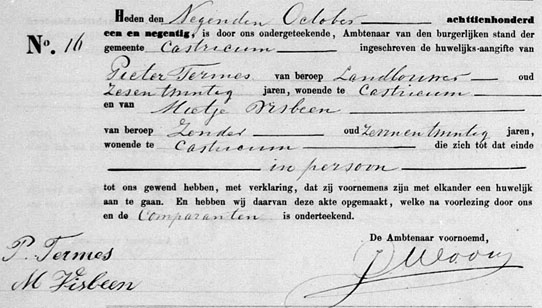 Heden den Negenden October achttienhonderd
een en negentig, is door ons ondergeteekende, Ambtenaar van den burgerlijken stand der
No. 16 gemeente Castricum ingeschreven de huwelijks-aangifte van
Pieter Termes van beroep Landbouwer oud
Zesentwintig jaren, wonende te Castricum
en van Mietje Visbeen
van beroep Zonder oud Zevenentwintig jaren,
wonende te Castricum die zich tot dat einde
in persoon
tot ons gewend hebben, met verklaring, dat zij voornemens zijn met elkander een huwelijk
aan te gaan. En hebben wij daarvan deze akte opgemaakt, welke na voorlezing door ons
en de Comparanten is onderteekend.
De Ambtenaar voornoemd,
P. Termes
M Visbeen